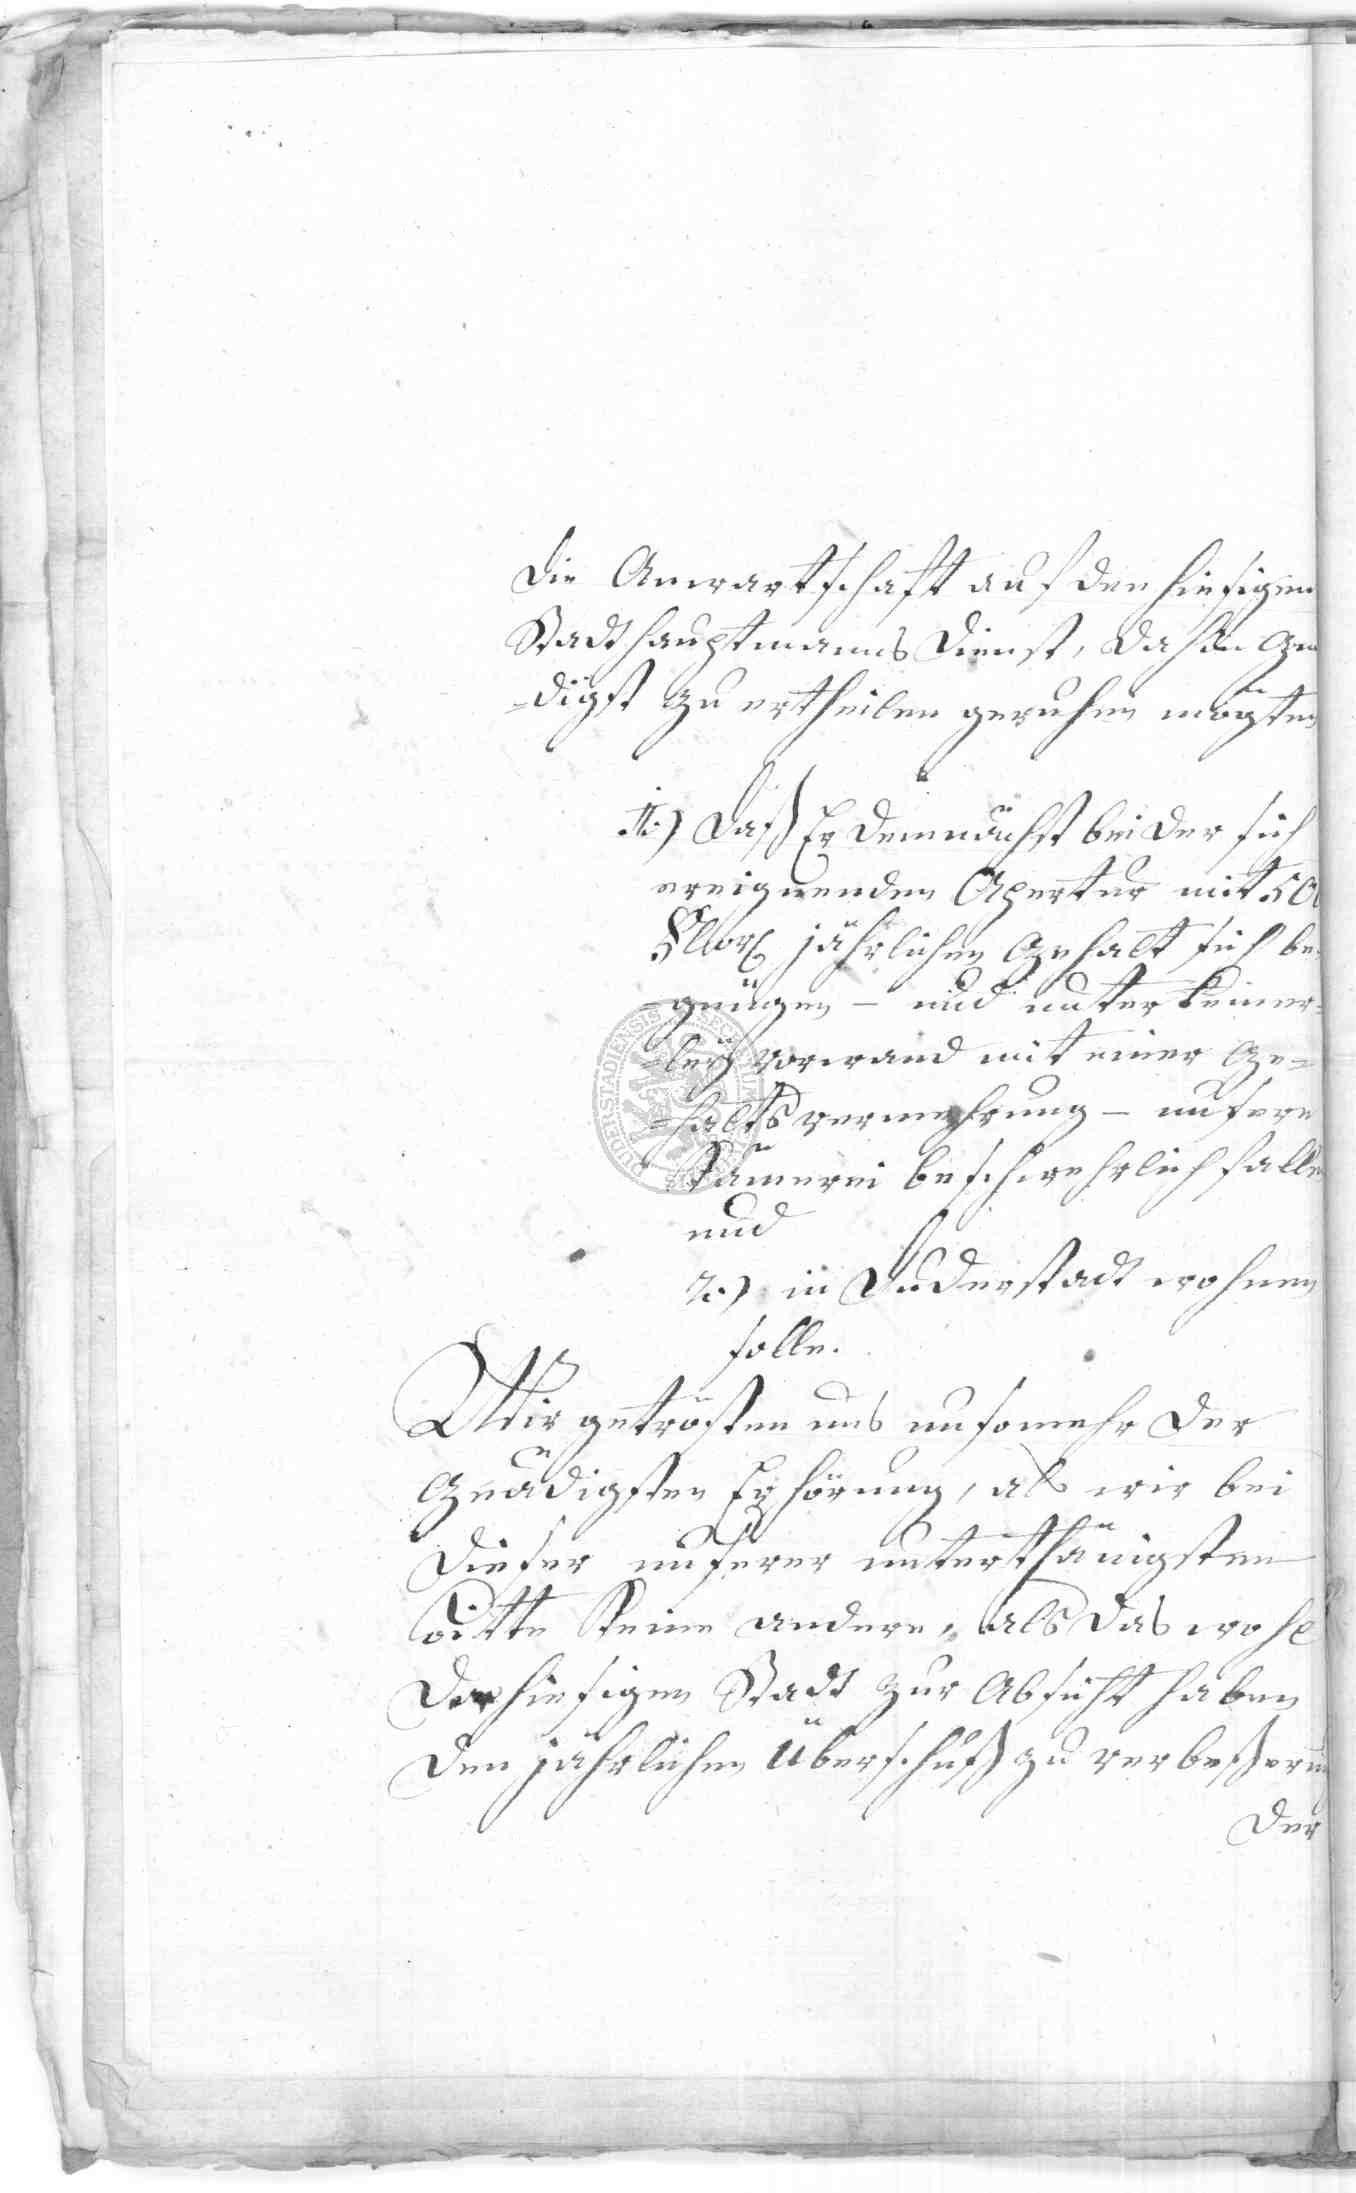 die Anwartschaft auf den hiesigen
Stadthauptmanns Dienst, dahin gnä
-digst zu ertheilen geruhen mögten
1.) daß Er demnächst bei der sich
ereignenden Apertur mit 50
Flor jährlichen Gehalt sich be-
-gnügen – und unter keiner-
-leÿ vorwand mit einer Ge-
-halts vermehrung – unsere
Kämerei beschwehrlich falle
und
2.) in Duderstadt wohnen
solle.
Wir getrösten uns umsomehr der
Gnädigsten Erhörung, als wir bei
dieser unserer unterthänigsten
bitte Keine andere, als das wohl
der hiesigen Stadt zur Absicht haben
den jährlichen überschuß zu verbeßerung
der
DUDERSTADIENSIS